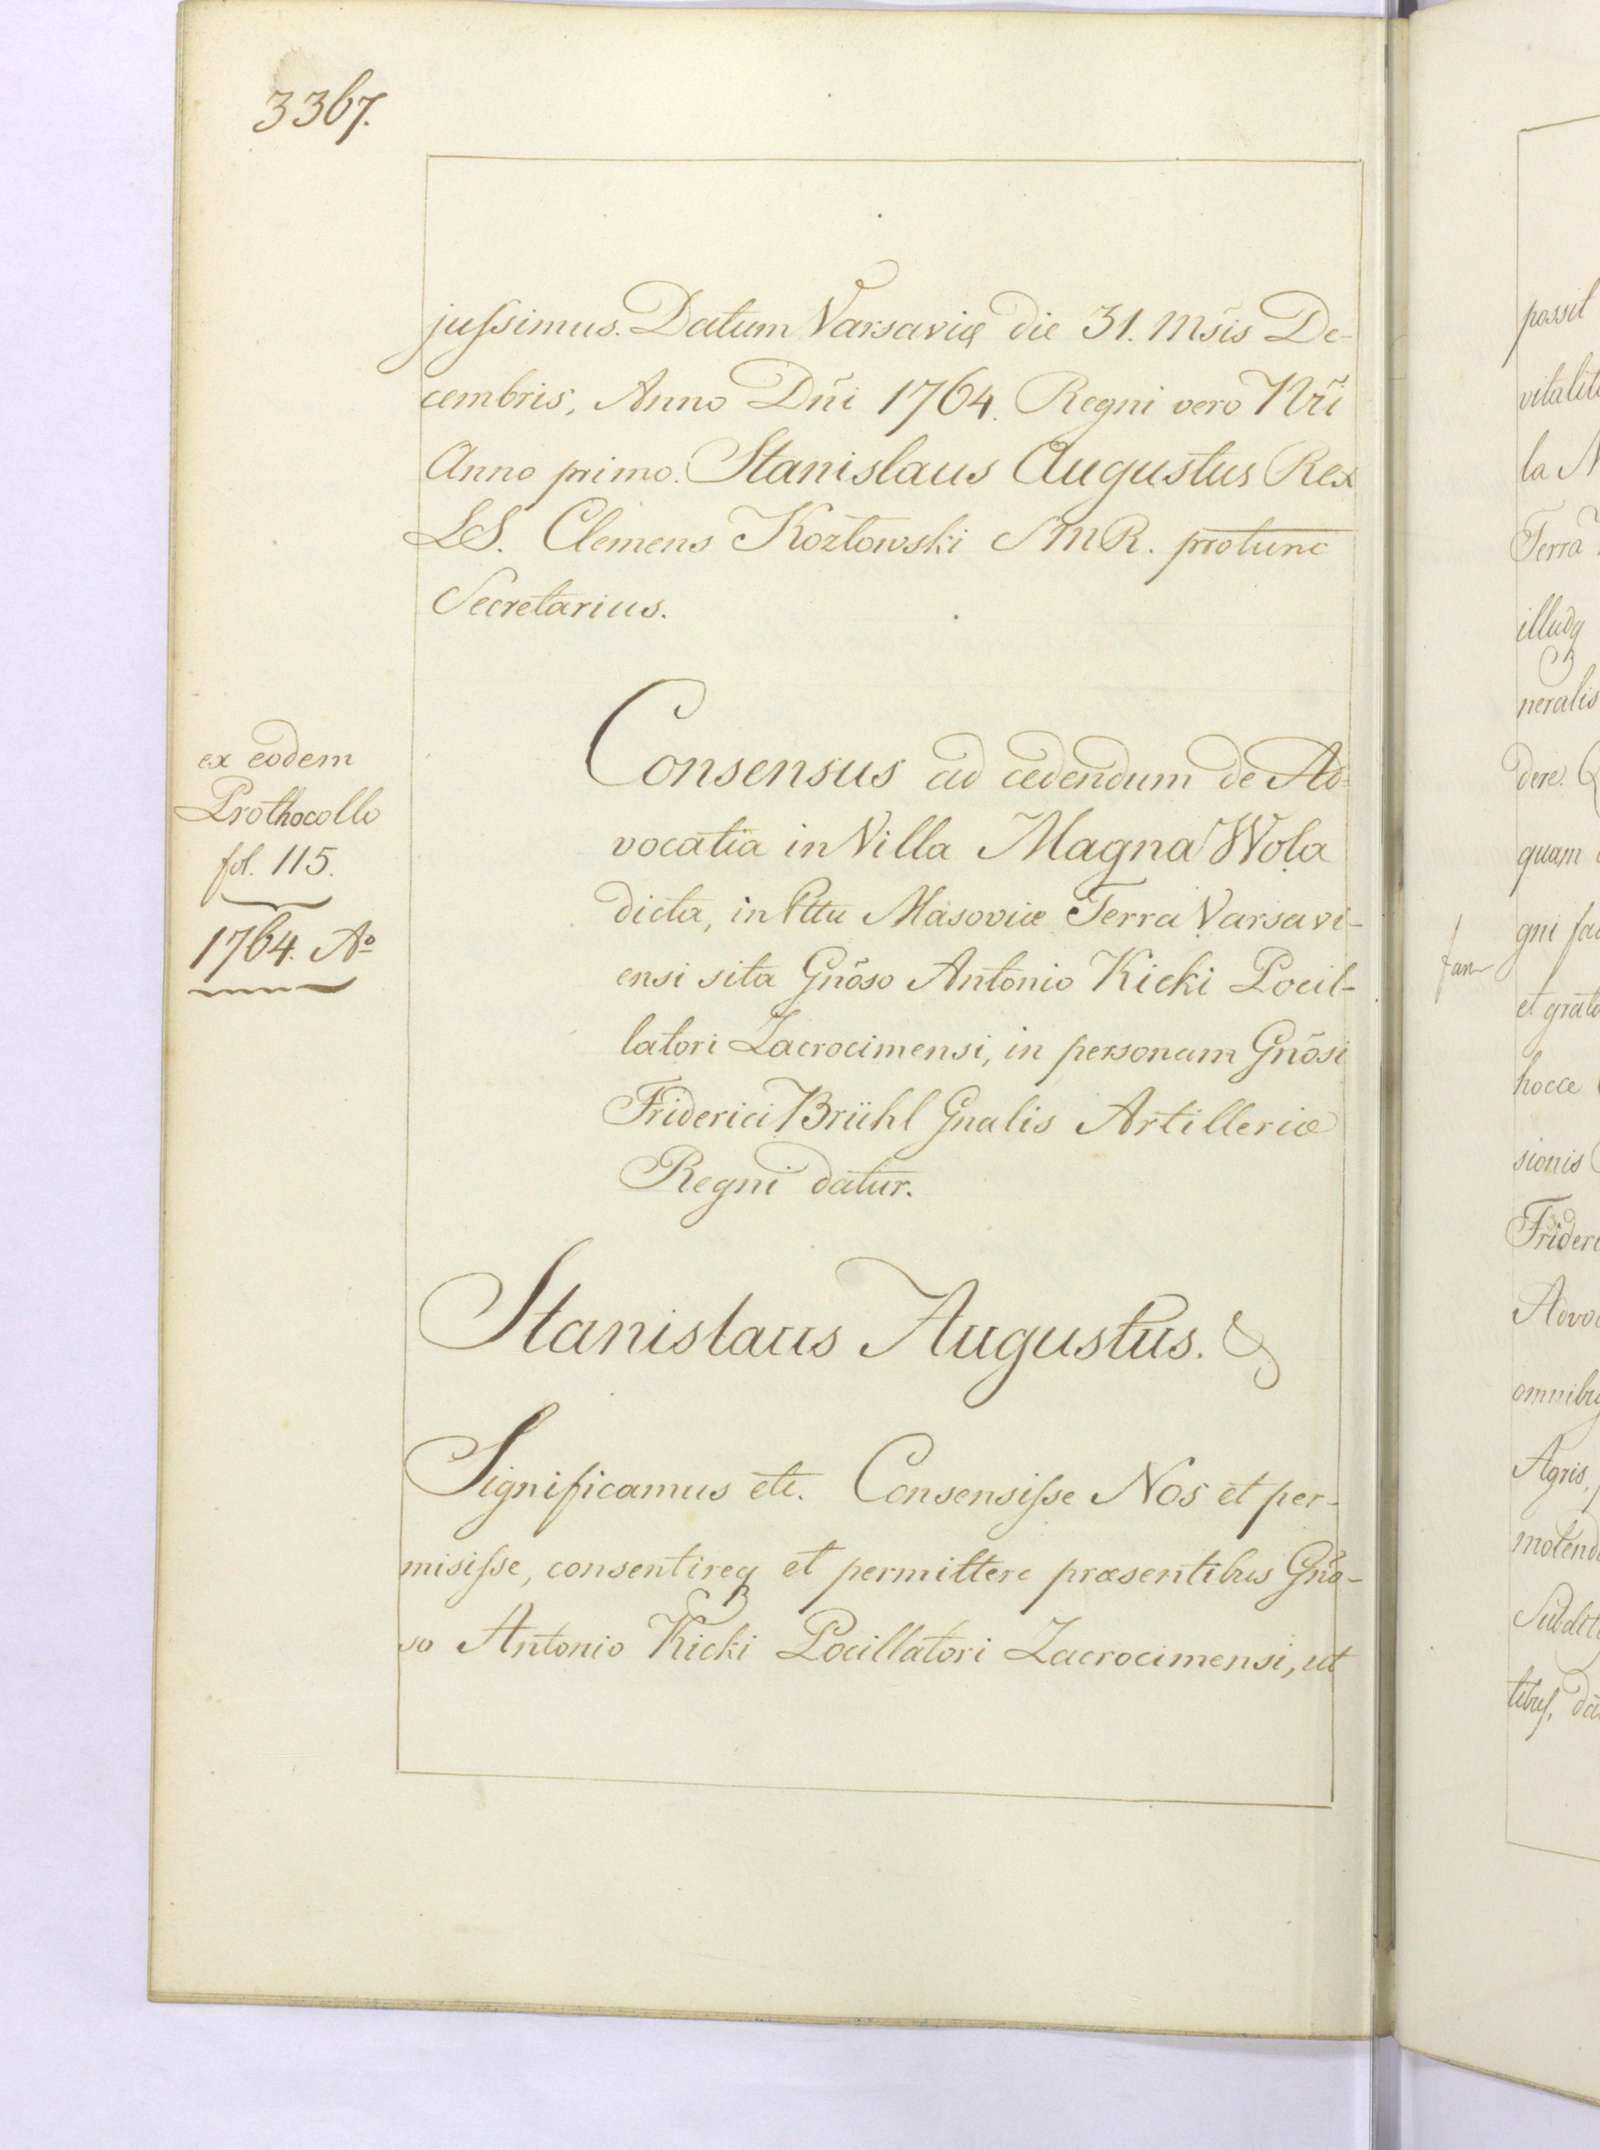 3367.
juſsimus. Datum Varsaviæ die 31. Msis De-
cembris, Anno Dñi 1764. Regni vero Nri
Anno primo. Stanislaus Augustus Rex
LS. Clemens Kozłowski SMR. protunc
Secretarius.
ex eodem
Prothocollo
fol. 115.
1764. Aº
Consensus ad cedendum de Ad-
vocatia in Villa Magna Wola
dicta, in Pttu Masoviæ Terra Varsavi-
ensi sita Gnõso Antonio Kicki Pocil-
latori Zacrocimensi, in personam Gnõsi
Friderici Brühl Gnalis Artilleriæ
Regni datur.
Stanislaus Augustus. &
Significamus etc. Consensiſse Nos et per-
misiſse, consentireq et permittere præsentibus Gnõ-
so Antonio Kicki Pocillatori Zacrocimensi, ut
possit
vitalit
la N
Terra
illudq
neralis
dere
quam
gni fa
et grato
hocce
sionis
Frideri
Advoc
omnibu
Agris,
molend
Subdit